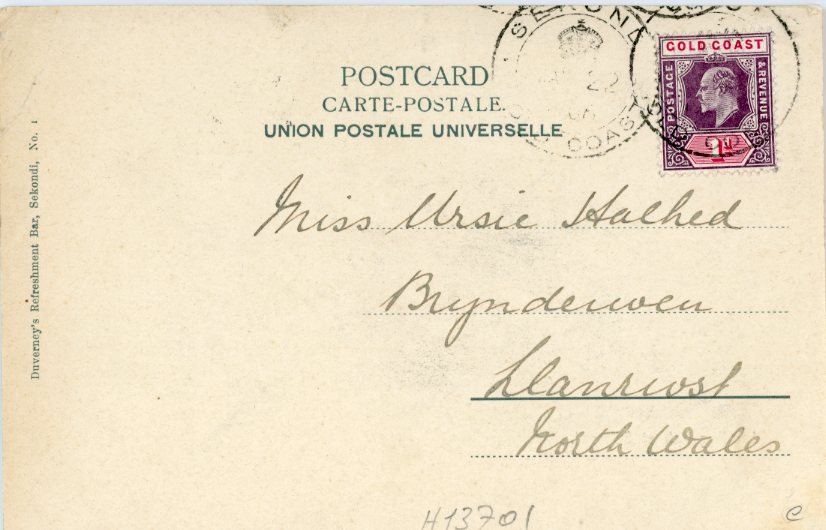 POSTCARD
CARTE-POSTALE.
UNION POSTALE UNIVERSELLE
GOLD COAST
POSTAGE
& REVENUE
1d
COAST
22
Miss Ursie Halhed
Brynderwen
Llanrwst
North Wales
Duverney's Refreshment Bar, Sekondi, No. 1
H13701
e